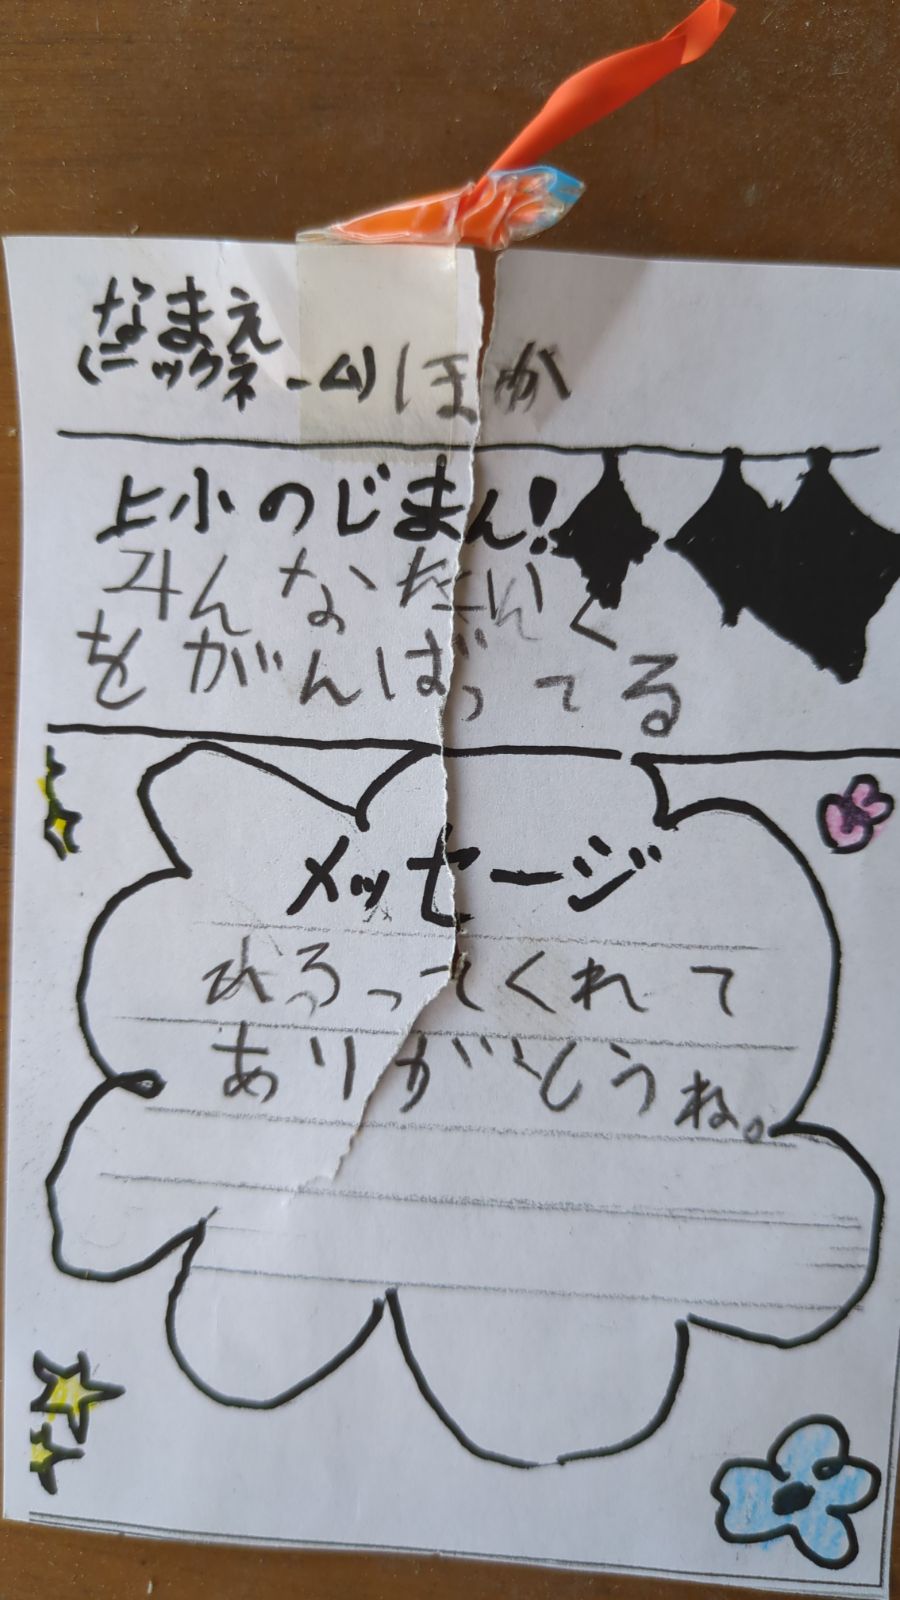 なまえ
(ニックネーム) ほのか
上小のじまん!
みんなたいいく
をがんばってる
メッセージ
ひろってくれて
ありがとうね。